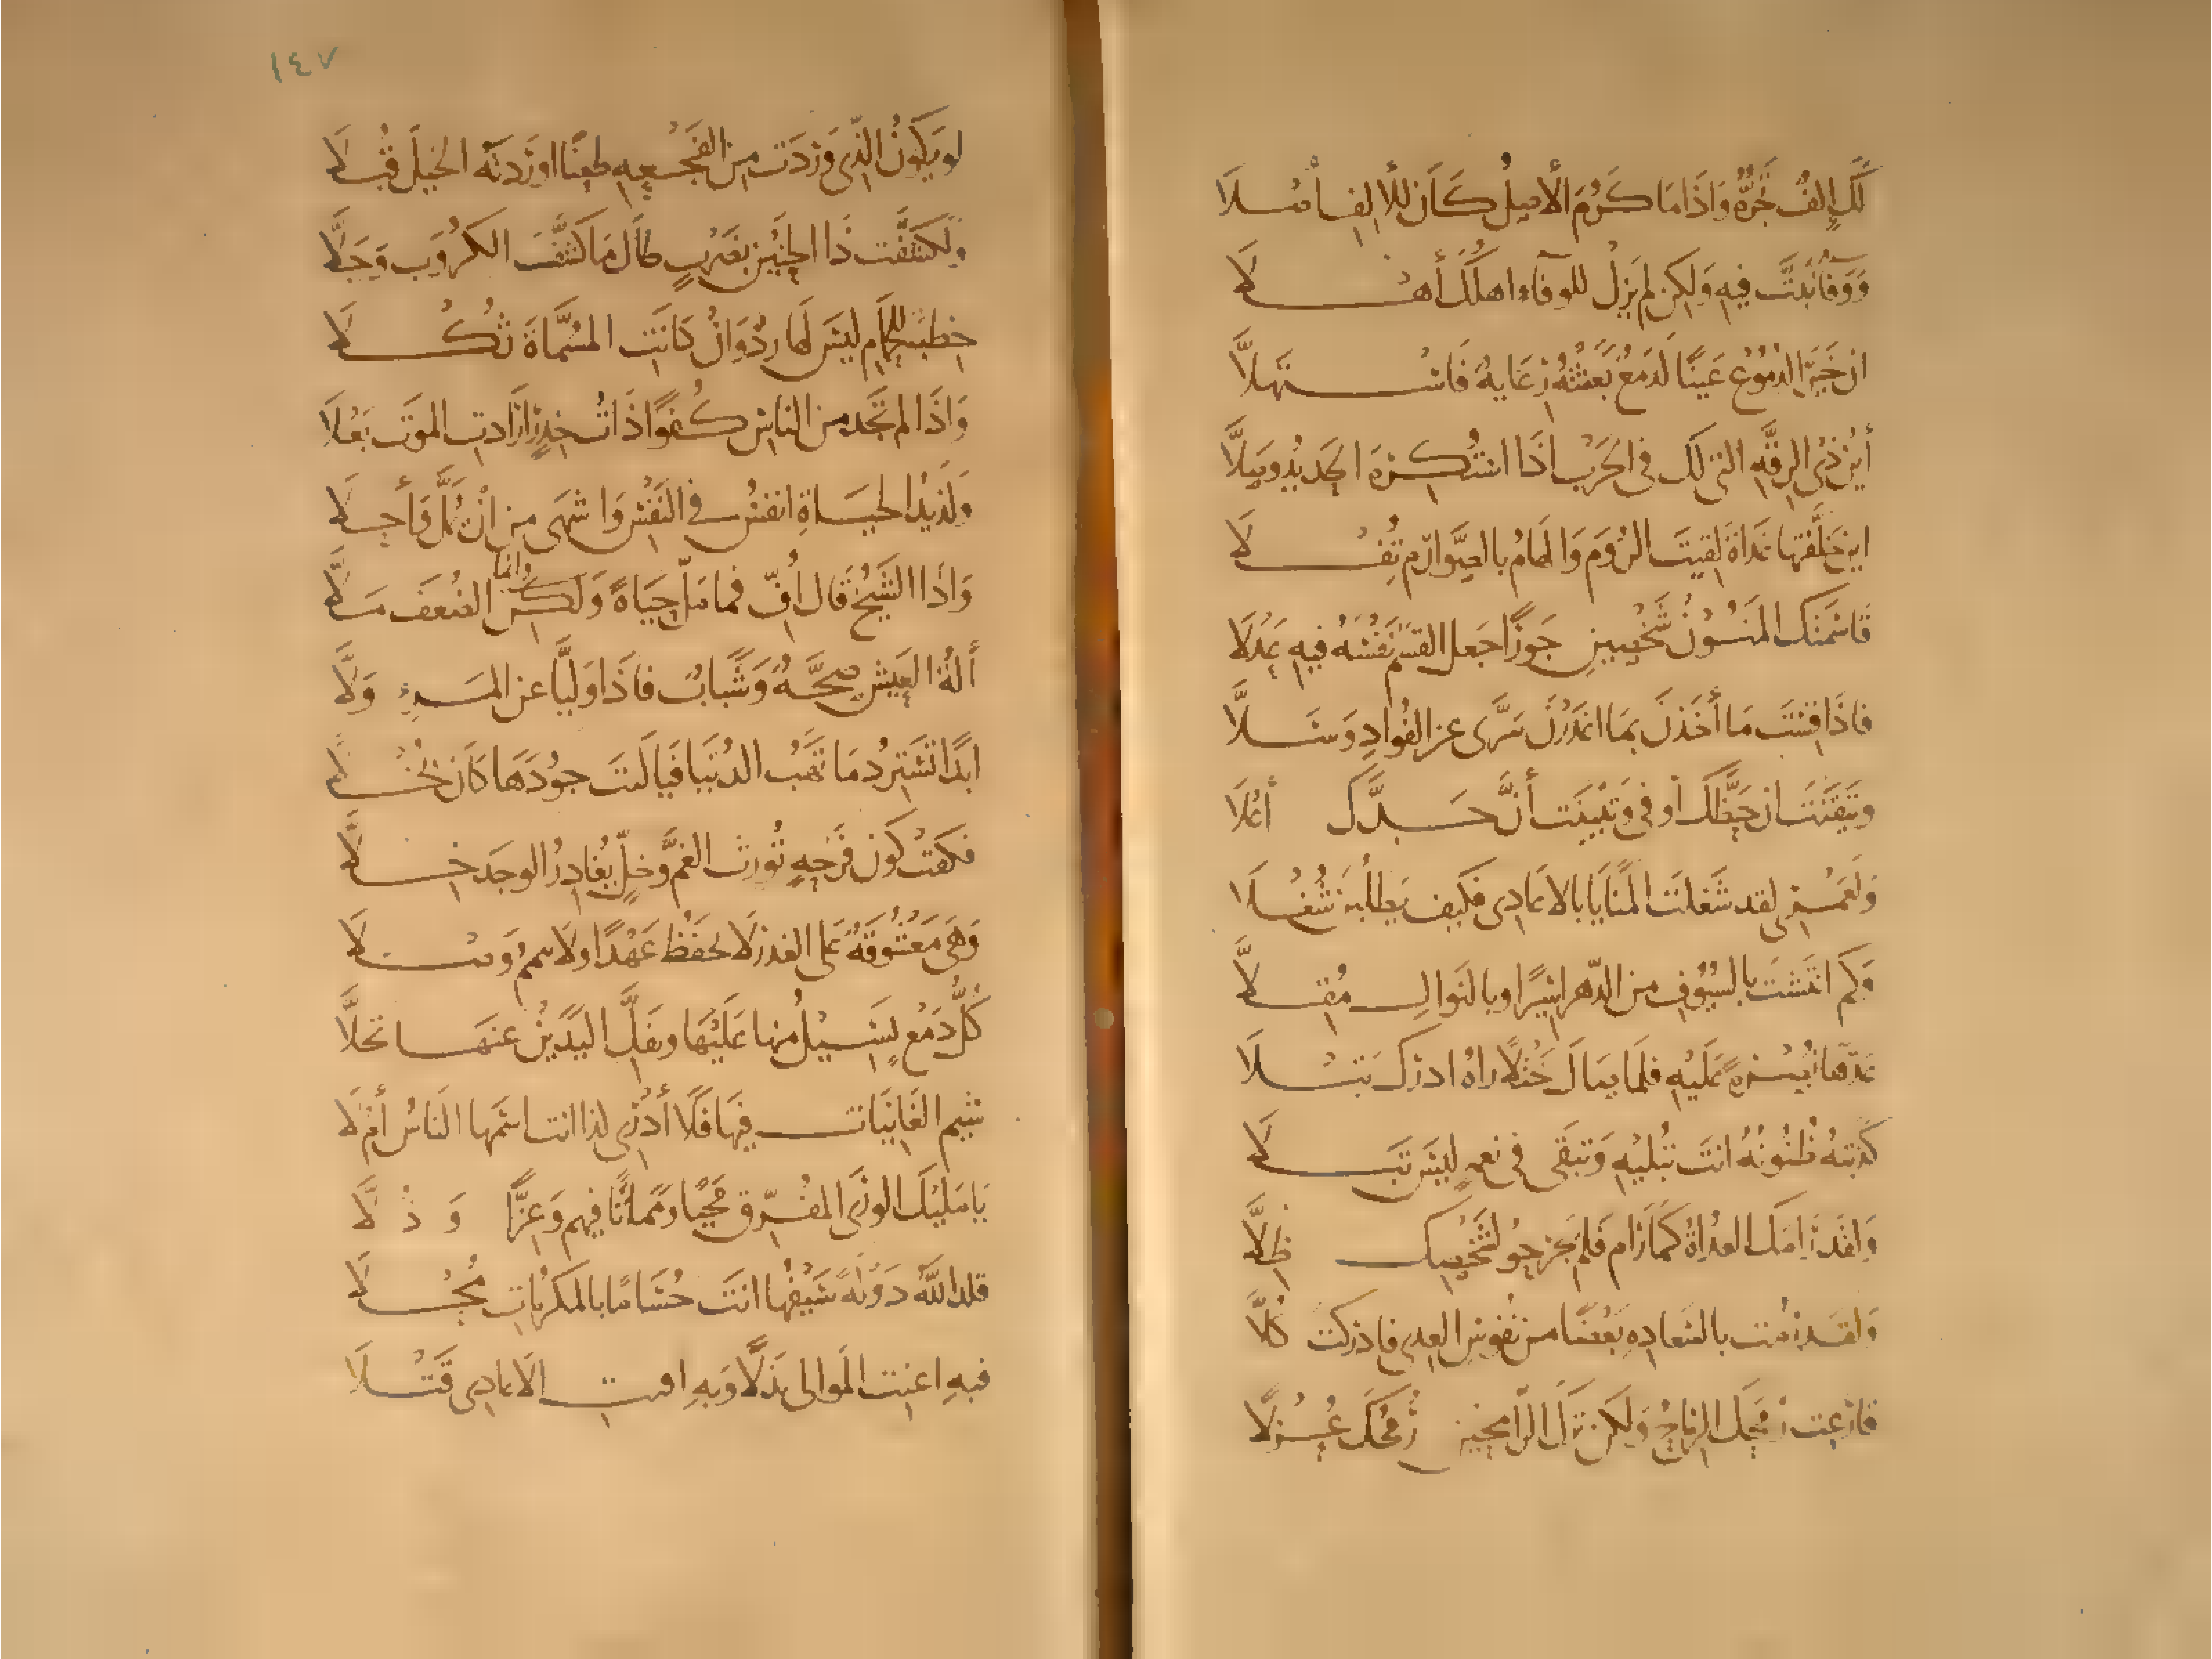 لَكَ إِلفٌ تَجُرُّهُ وَاذَا مَا كَرُمَ الأصلُ كَانَ للأ لفِ أصْلَا
وَوَفَاءٌ نَبَتَّ فيهِ وَلكِن لم يَزلْ للوفاءِ اهلُكَ أهْلَا
ان خَيرَ الدمُوُع عَينًا لَدَمْعٌ بَعثَتْهُ رِعَايةٌ فَاسْتَهلاَّ
أينَ ذِي الرِقَّةِ التي لَكَ في الحَرْبِ اذَا استُكرِهَ الحَديدُ وصَلاَّ
اين خَلَّفتَها غَدَاةَ لقيتَ الرُومَ وَالهَامُ بالصَّوارِمِ تُفْلَا
قاسَمَتكَ المَنُونُ شَخْصينِ جَورًا جَعلَ القَسْمُ نَفْسَهُ فيهِ عَدْلَا
فاذَا قِسْتَ مَا أخَذنَ بمَا اغدَرْنَ سَرَّى عن الفُوادِ وَسَلاَّ
وتَيقَنْتَ ان حَظَّكَ أوفى وَتَبَينَت أنَّ جَدَّكَ أعْلَا
وَلعَمْرِي لقد شَغلتَ المَنَايَا بالاعَادِى فكيفَ يَطلُبْنَ شُغْلَا
وَكم انتَشتَ بالسُيُوفِ من الدّهرِ اسَيرًا وبالنَوالِ مُقِلاَّ
عَدّهَا نُصْرةً عَلَيْهِ فلَمَا صَالَ خَتْلًا رَاهُ ادرَكَ تَبْلَا
كذبَتهُ ظُنُونُهُ انتَ تُبْليْهِ وَتبَقى في نعمةٍ ليسَ تَبْلَا
وَلقَد رَامَكَ العُدَاةُ كَمَا رَامَ فَلم يَجرَحوا لشَخْصِكَ ظِلاَّ
وَلقَد رُمتَ بالسَعادِهِ بَعْضًا من نفُوسِ العِدى فادرَكتَ كُلاَّ
قارَعت رُمحَكَ الرِمَاحُ وَلكن تَركَ الرَّامحينَ رُمحُكَ عُزْلَا
١٤٧
لو يَكوُنُ الذِي وَرَدَت مِن الفَجْعِهِ طعنًا اورَدتَه الخَيلَ قُبْلَا
ولكَشَّفت ذَا الحَنيْنَ بضَربٍ طَالَ مَا كشَّفَ الكُروُبَ وَجَلاَّ
خِطبَةٌ للحِمَامِ ليسَ لهَا رَدٌ وَانْ كَانَتِ المُسَمَّاةَ ثُكْلَا
وَاذَا لم تَجَد من النَاسِ كُفؤًا ذَاتُ خِدرٍ ارَادتِ الموتَ بَعْلَا
وَلذيذُ الحيَاةِ انفسُ في النَفْسِ وَاشهَى مِن انْ يُمَلَّ وَأحلَا
وَاذَا الشَيْخُ قَال اُفّ فما مَلّ حَيَاةً وَلكن وانما الضُعفَ مَلَّا
ألةُ العَيشِ صِحَّهٌ وَشَبابٌ فاذَا وَليَّا عن المَرءِ وَلَّا
ابَدًا تَستَرِدُ مَا تَهَبُ الدُنيَا فيَا لَيتَ جوُدَهَا كَانَ بُخْلَا
فكفَتْ كَونَ فَرْحهٍ تُورثُ الغَمَّ وَخلٍّ يُغَادِرُ الوجَدَ خِلَّا
وَهيَ مَعشُوقَةٌ عَلى الغدرِ لَا تحفَظُ عَهْدًا ولا تتممُ وَصْلَا
كُلُّ دَمْعٍ يَسيْلُ مُنها عَلَيْهَا وبفَكِّ اليَدَيْنِ عنهَا تَخلاَّ
شيم الغَانِيَات فيهَا فَلَا أدْرِي لذا انت اسْمَها الناسُ أمْ لَا
يَا مَليْكَ الورَى المُفَرّقَ مَحيًا ومَمَاتًا فيهم وَعِزًّا وَذُلَّا
قلد اللهُ دَوْلهً سَيْفُها انتَ حُسَامًا بالمَكرُماتِ مُحْلَا
فبهِ اغنِت المَوالى بَذلًا وَبهِ افنتِ الاعادِى قَتْلَا